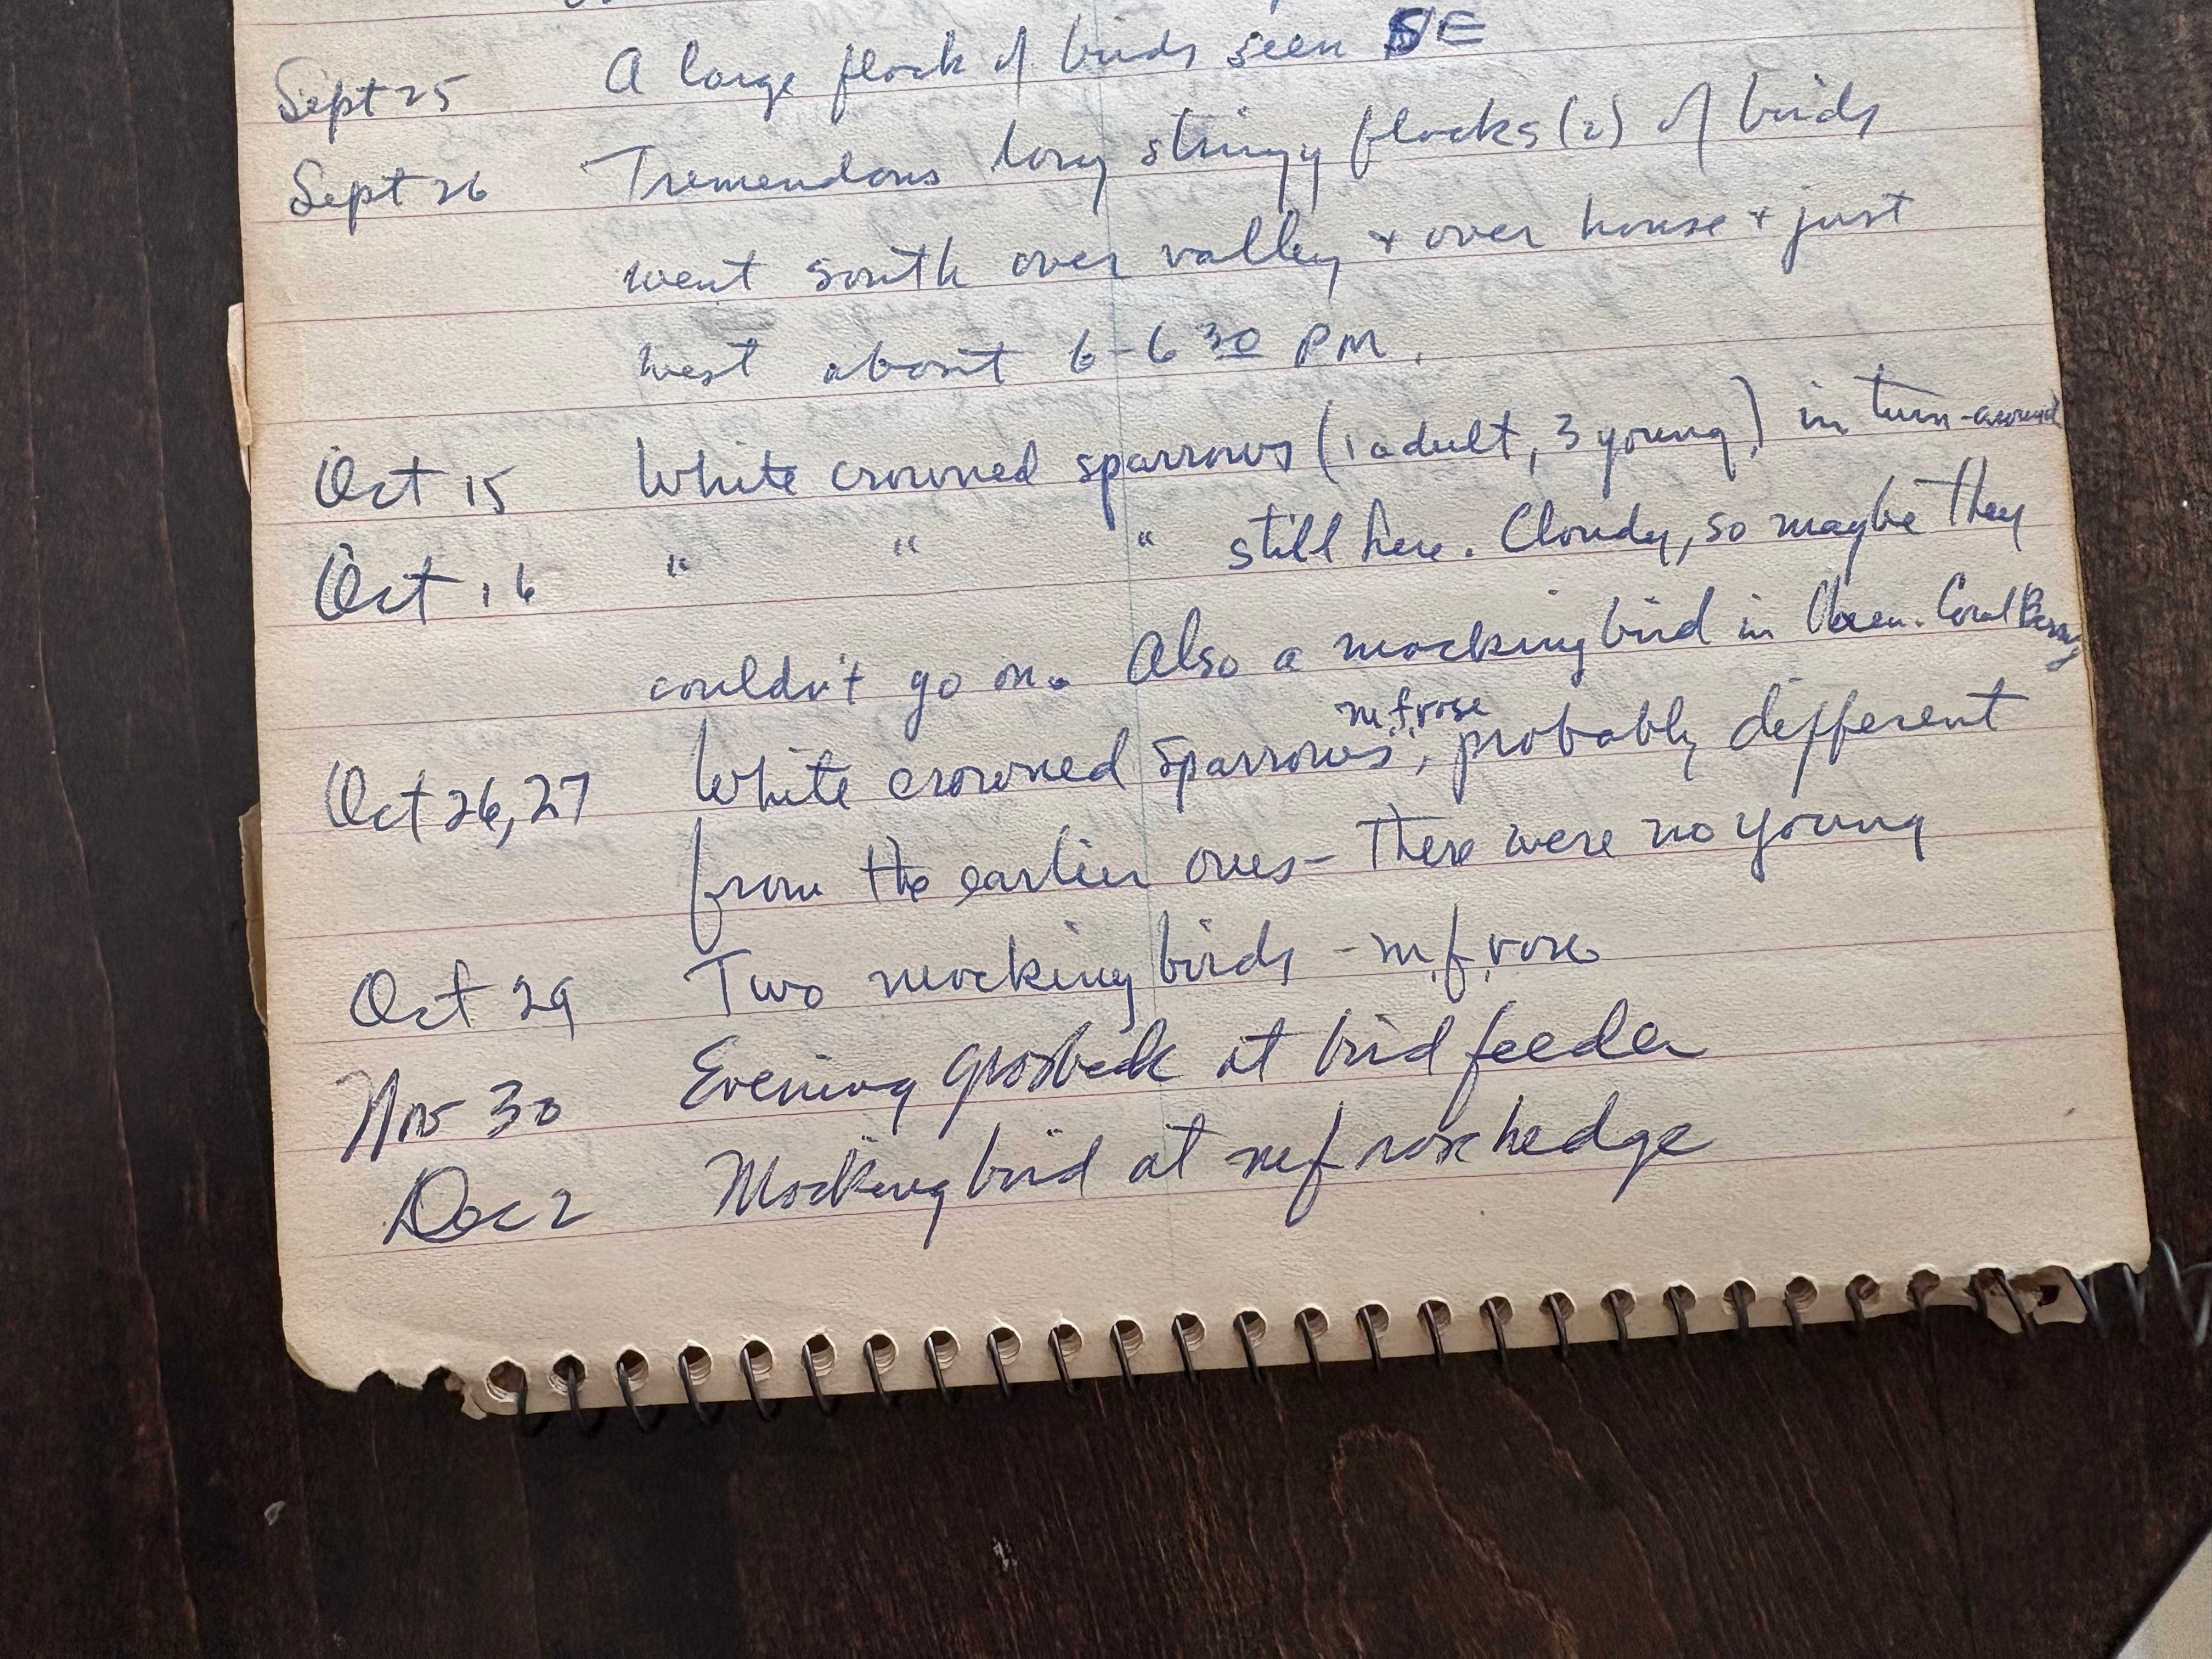 Sept 25 A large flock of birds seen SE
Sept 26 Tremendous long stringy flocks (2) of birds
went south over valley + over house + just
west about 6-6 30 PM.
Oct 15 White crowned sparrows (1 adult, 3 young) in turn-around
Oct 16 " " " still here. Cloudy, so maybe they
couldn't go on. Also a mockingbird in Coral Berry
m f rose
Oct 26, 27 White crowned sparrows, probably different
from the earlier ones - There were no young
Oct 29 Two mockingbirds - m.f. rose
Nov 30 Evening grosbeak at bird feeder
Dec 2 Mockingbird at mf rose hedge